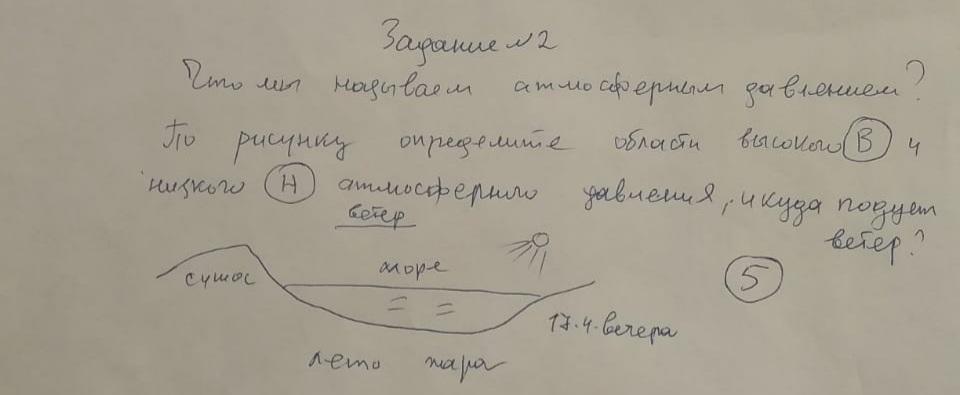 Задание №2
Что мы называем атмосферным давлением?
По рисунку определите области высокого В и
низкого Н атмосферного давления, и куда подует
ветер
ветер?
суша
море
5
17.ч.вечера
лето жара